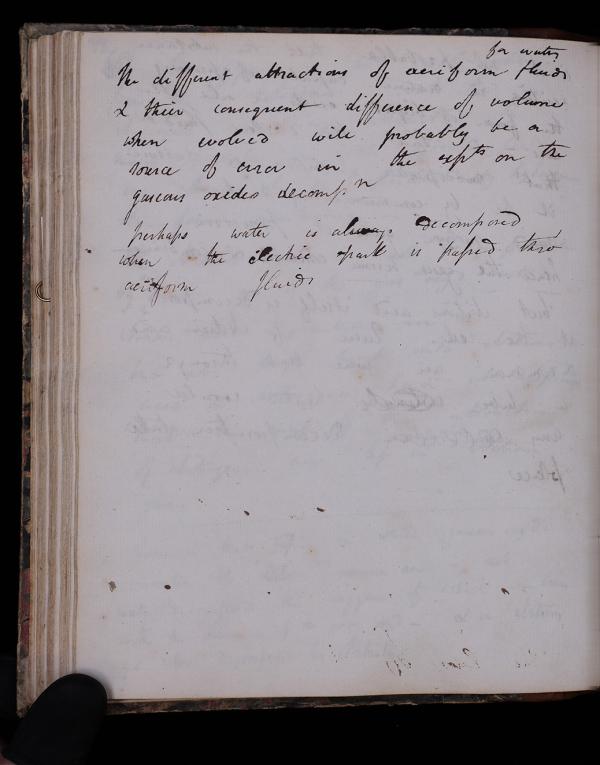 for water
The different attractions of aeriform fluids
& their consequent difference of volume
when evolved will probably be a
source of error in the expts on the
gaseous oxides decomp.n
perhaps water is always decomposed
when the electric spark is passed thro
aeriform fluids